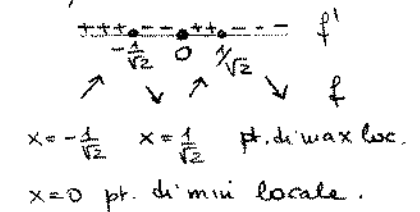 +++ - - ++ - - - f'
-1/√2 0 1/√2
↗ ↘ ↗ ↘ f
x = -1/√2 x = 1/√2 pt. di max loc.
x=0 pt. di min locale.